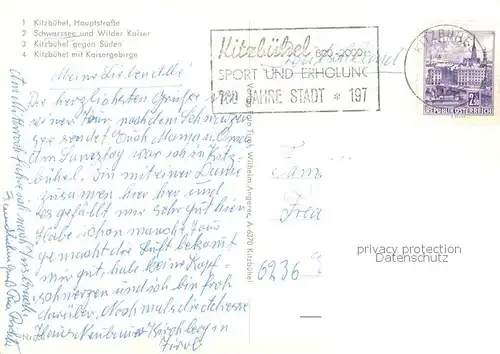 1 Kitzbühel, Hauptstraße
2 Schwarzsee und Wilder Kaiser
3 Kitzbühel gegen Süden
4 Kitzbühel mit Kaisergebirge
Kitzbühel 800-2000 m
SPORT UND ERHOLUNG
700 JAHRE STADT * 197
KITZBÜHEL
2.-
REPUBLIK ÖSTERREICH
Meine Liebe
Die herzlichsten Grüße
einer Tour nach dem Schwarz
see sendet Euch Mama u. Oma
Am Samstag war ich in Kitz-
bühel. Bin mit einer Dame
zusammen hier her und
es gefällt mir sehr gut hier
Habe schon manche Tour
gemacht die Luft bekomt
mir gut, habe keine Kopf-
schmerzen und ich bin froh
darüber. Nochmals die Adresse
Haus Kirchberg in
Tirol
Am Mittwoch fahre ich nach Innsbruck
Wilhelm Angerer, A-6370 Kitzbühel
Fam
6236
privacy protection
Datenschutz